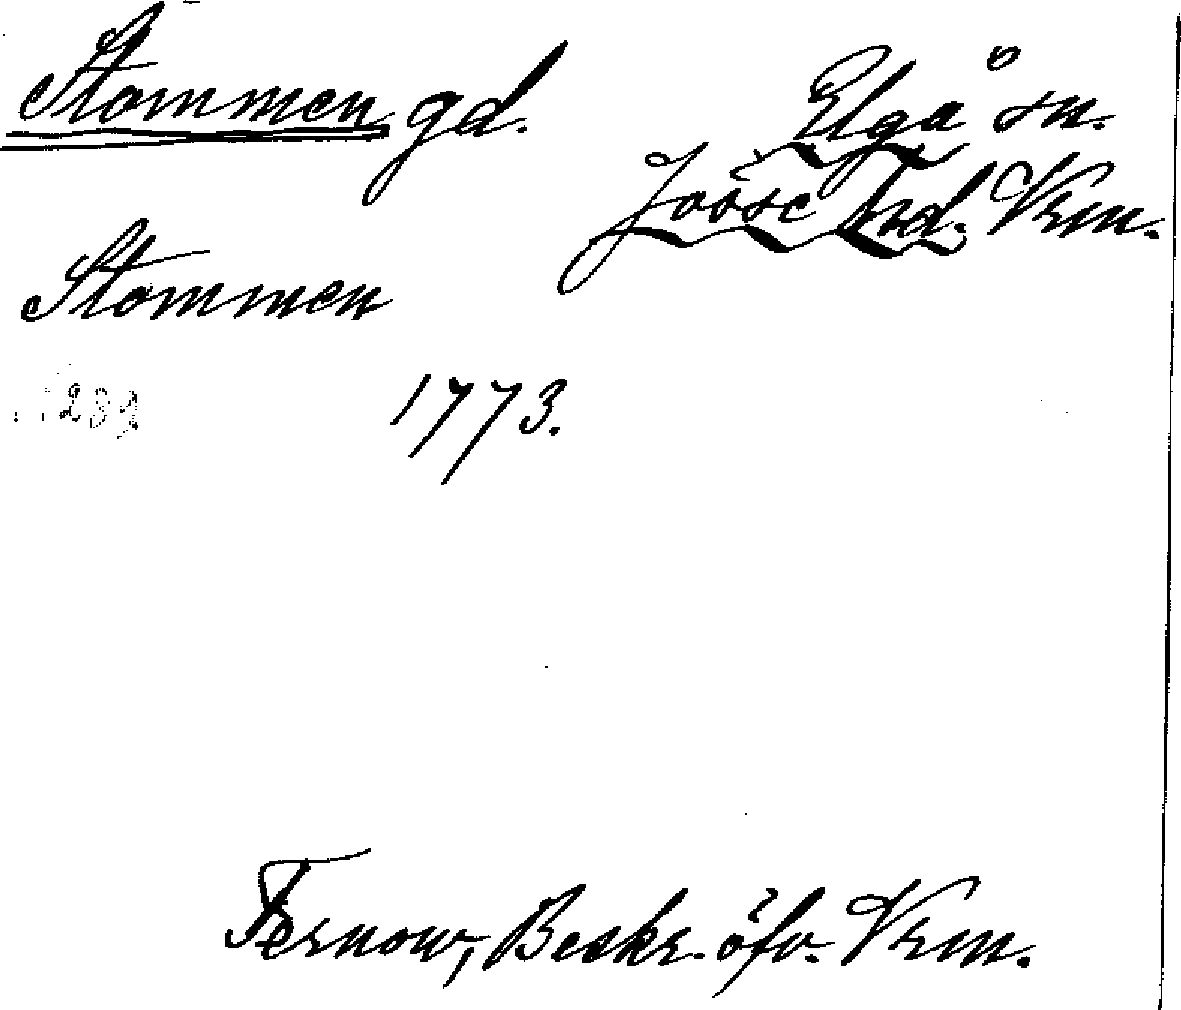 Stommen gd.
Elgå sn.
Jösse hrd. Vrm.
Stommen
1773.
Fernow, Beskr. öfv. Vrm.